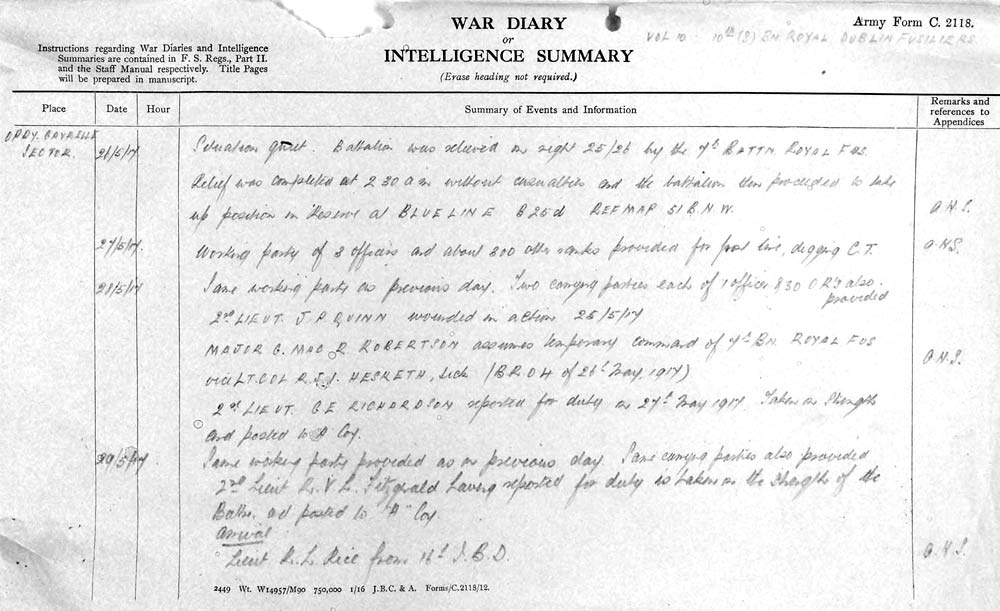 WAR DIARY
or
INTELLIGENCE SUMMARY
(Erase heading not required.)
Army Form C. 2118.
VOL 10 10th (S) BN ROYAL DUBLIN FUSILIERS.
Instructions regarding War Diaries and Intelligence
Summaries are contained in F. S. Regs., Part II.
and the Staff Manual respectively. Title Pages
will be prepared in manuscript.
Place Date Hour Summary of Events and Information Remarks and
references to
Appendices
OPPY. GAVRELLE
SECTOR. 26/5/17. Situation quiet. Battalion was relieved on night 25/26 by the 7th BATTN ROYAL FUS.
Relief was completed at 2 30 a m without casualties and the battalion then proceeded to take
up position in Reserve at BLUE LINE B 25d REF MAP 51 B. N. W.
27/5/17. Working party of 3 officers and about 300 other ranks provided for front line, digging C.T.
28/5/17. Same working party as previous day. Two carrying parties each of 1 officer & 30 O R's also
provided
2nd LIEUT. J P QUINN wounded in action 25/5/17
MAJOR MAC R. ROBERTSON assumes temporary command of 7th BN ROYAL FUS
vice LT. COL HESKETH, sick (BRO 4 of 26th May, 1917)
2nd LIEUT. C E RICHARDSON reported for duty on 27th May 1917. Taken on Strength
and posted to "A" Coy.
29/5/17 Same working party provided as on previous day. Same carrying parties also provided
2nd Lieut R. V L. Fitzgerald having reported for duty is taken on the strength of the
Battn. and posted to "A" Coy.
Arrival
Lieut R. L. Rice from 16th I. B. D.
2449 Wt. W14957/M90 750,000 1/16 J.B.C. & A. Forms/C.2118/12.